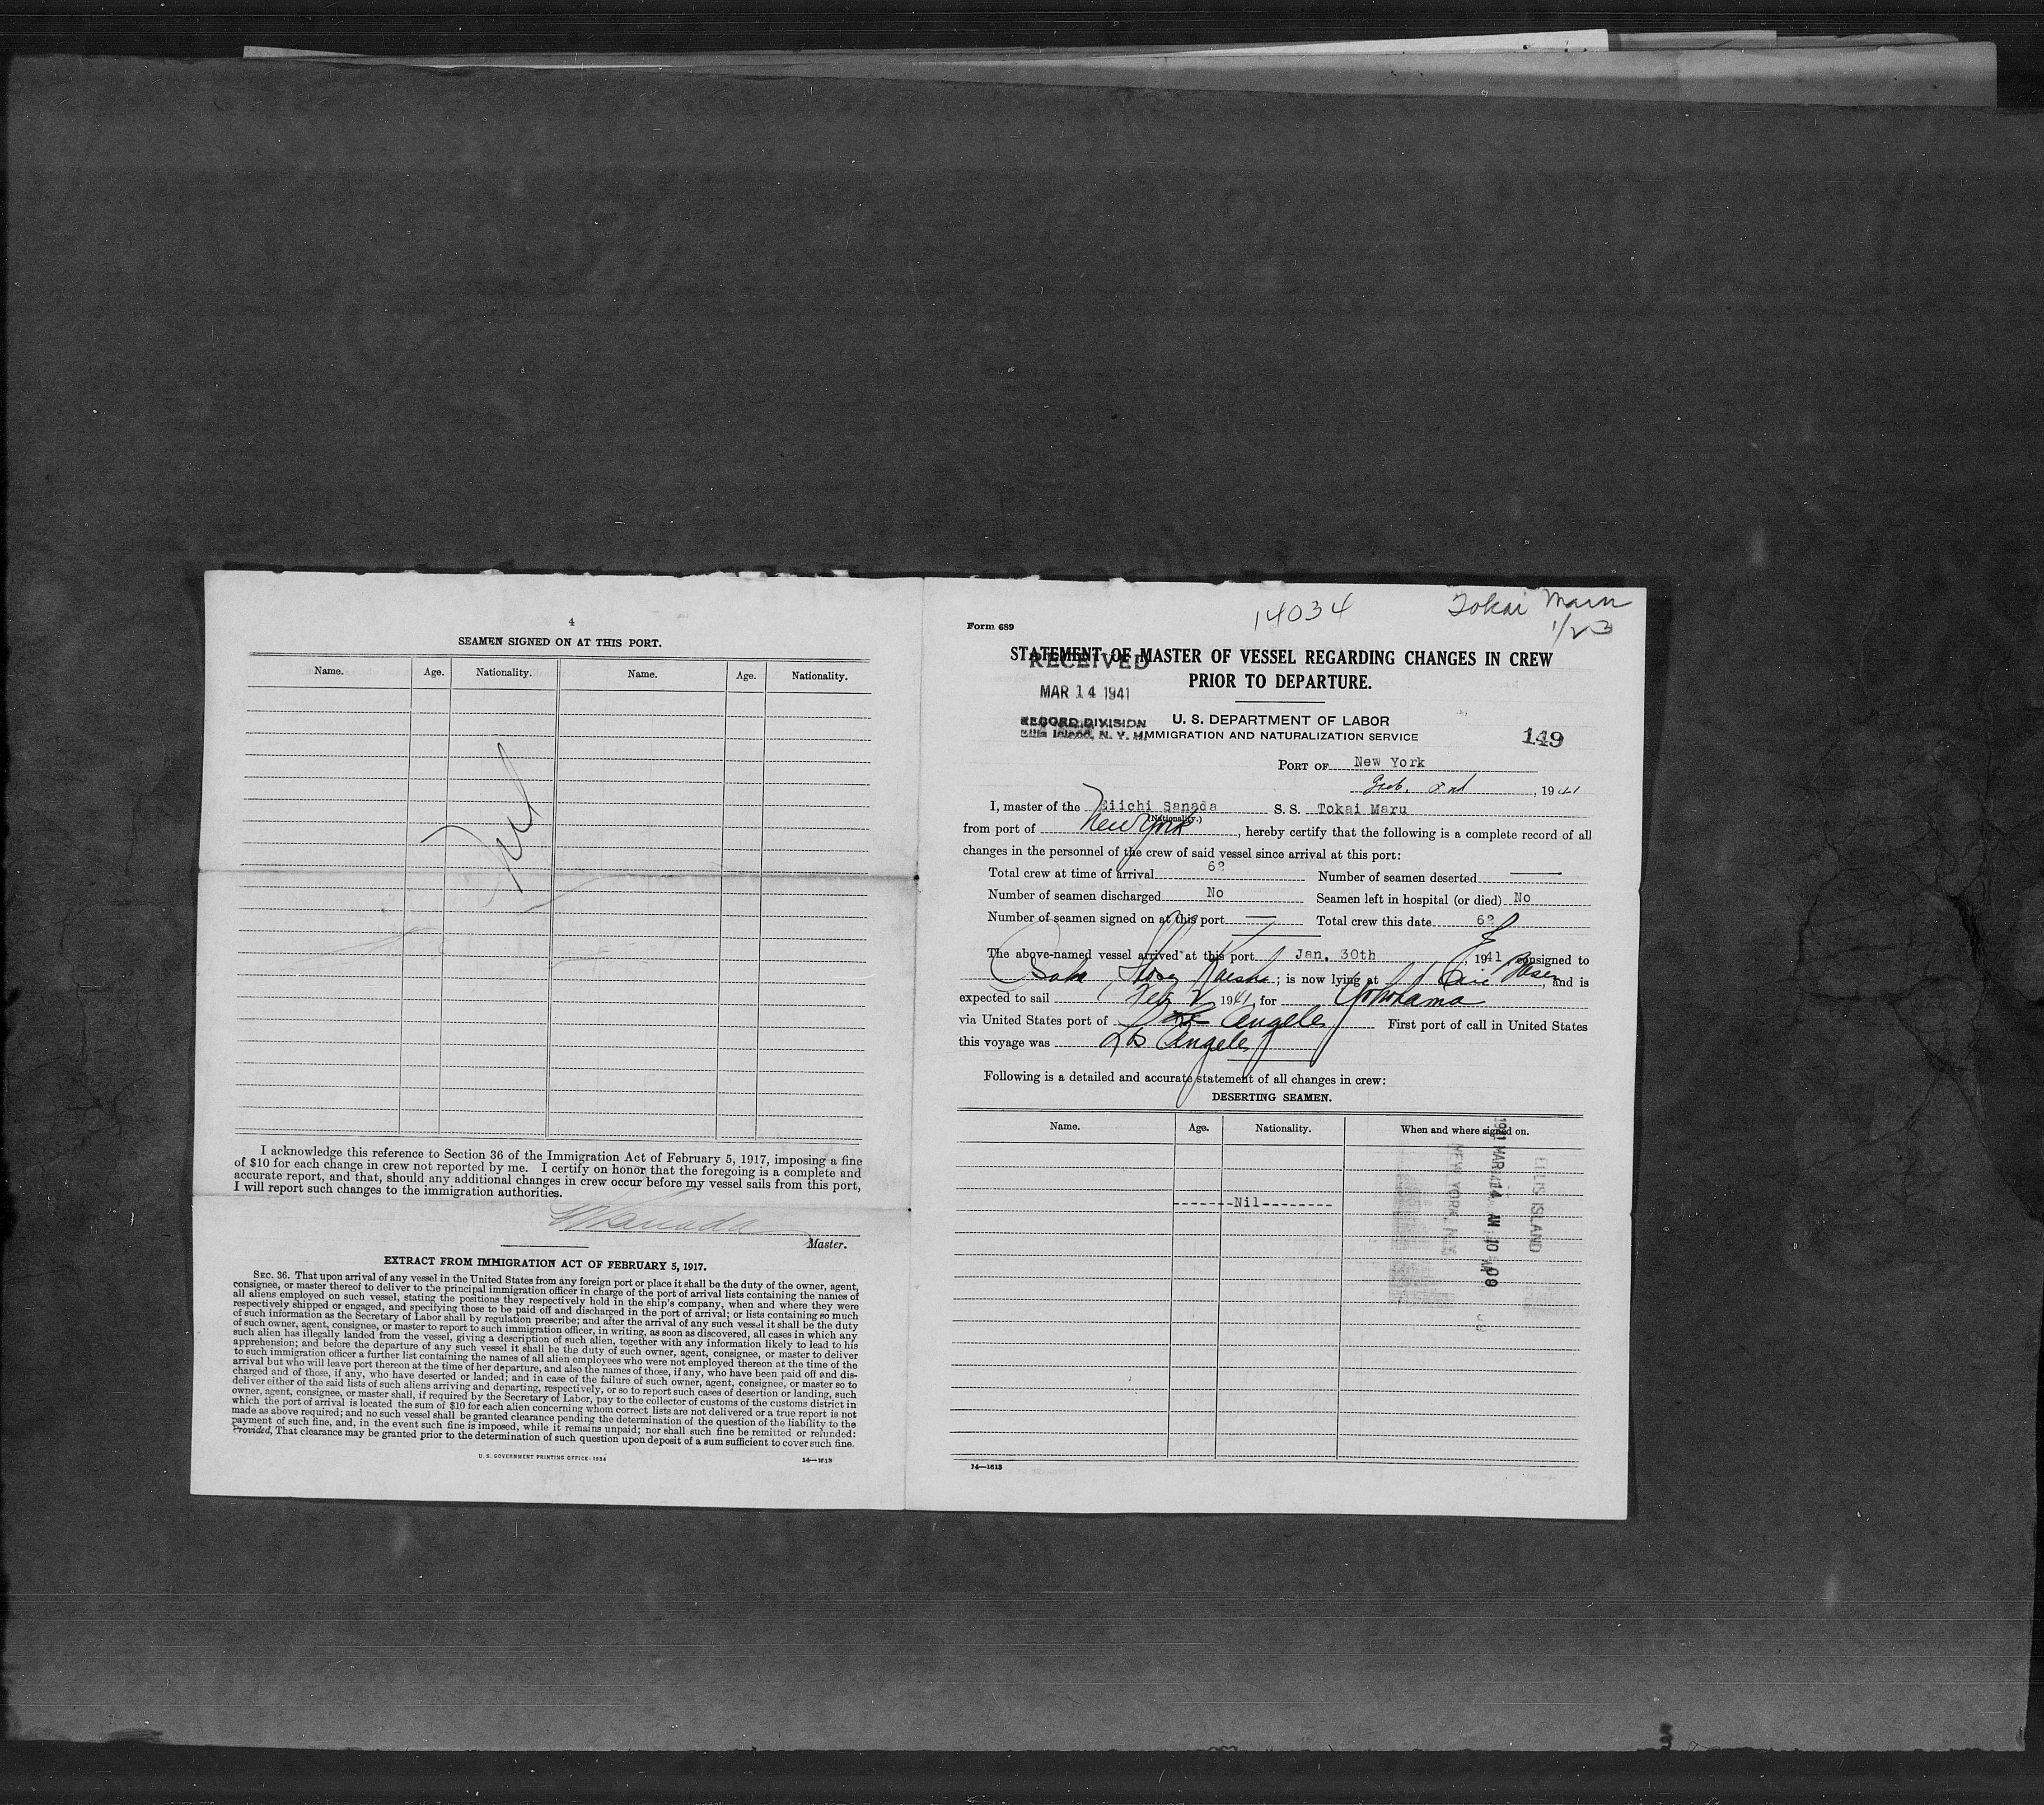 4
SEAMEN SIGNED ON AT THIS PORT.
Name. Age. Nationality. Name. Age. Nationality.
I acknowledge this reference to Section 36 of the Immigration Act of February 5, 1917, imposing a fine
of $10 for each change in crew not reported by me. I certify on honor that the foregoing is a complete and
accurate report, and that, should any additional changes in crew occur before my vessel sails from this port,
I will report such changes to the immigration authorities.
Master.
EXTRACT FROM IMMIGRATION ACT OF FEBRUARY 5, 1917.
SEC. 36. That upon arrival of any vessel in the United States from any foreign port or place it shall be the duty of the owner, agent,
consignee, or master thereof to deliver to the principal immigration officer in charge of the port of arrival lists containing the names of
all aliens employed on such vessel, stating the positions they respectively hold in the ship's company, when and where they were
respectively shipped or engaged, and specifying those to be paid off and discharged in the port of arrival; or lists containing so much
of such information as the Secretary of Labor shall by regulation prescribe; and after the arrival of any such vessel it shall be the duty
of such owner, agent, consignee, or master to report to such immigration officer, in writing, as soon as discovered, all cases in which any
such alien has illegally landed from the vessel, giving a description of such alien, together with any information likely to lead to his
apprehension; and before the departure of any such vessel it shall be the duty of such owner, agent, consignee, or master to deliver
to such immigration officer a further list containing the names of all alien employees who were not employed thereon at the time of the
arrival but who will leave port thereon at the time of her departure, and also the names of those, if any, who have been paid off and dis-
charged and of those, if any, who have deserted or landed; and in case of the failure of such owner, agent, consignee, or master so to
deliver either of the said lists of such aliens arriving and departing, respectively, or so to report such cases of desertion or landing, such
owner, agent, consignee, or master shall, if required by the Secretary of Labor, pay to the collector of customs of the customs district in
which the port of arrival is located the sum of $10 for each alien concerning whom correct lists are not delivered or a true report is not
made as above required; and no such vessel shall be granted clearance pending the determination of the question of the liability to the
payment of such fine, and, in the event such fine is imposed, while it remains unpaid; nor shall such fine be remitted or refunded:
Provided, That clearance may be granted prior to the determination of such question upon deposit of a sum sufficient to cover such fine.
U. S. GOVERNMENT PRINTING OFFICE: 1934 14—1613
14034 Tokai Maru
1/23
Form 689
STATEMENT OF MASTER OF VESSEL REGARDING CHANGES IN CREW
PRIOR TO DEPARTURE.
RECEIVED
MAR 14 1941
RECORD DIVISION
Ellis Island, N. Y. H.
U. S. DEPARTMENT OF LABOR
IMMIGRATION AND NATURALIZATION SERVICE
149
PORT OF New York
Feb. 2nd, 1941
I, master of the Eiichi Sanada S. S. Tokai Maru
(Nationality.)
from port of New York, hereby certify that the following is a complete record of all
changes in the personnel of the crew of said vessel since arrival at this port:
Total crew at time of arrival 62 Number of seamen deserted
Number of seamen discharged No Seamen left in hospital (or died) No
Number of seamen signed on at this port Total crew this date 62
The above-named vessel arrived at this port Jan. 30th, 1941 consigned to
Kaisha; is now lying at Erie Basin, and is
expected to sail Feb 2 1941 for Yokohama
via United States port of Los Angeles First port of call in United States
this voyage was Los Angeles
Following is a detailed and accurate statement of all changes in crew:
DESERTING SEAMEN.
Name. Age. Nationality. When and where signed on.
-------Nil--------
1941 MAR 14 AM 10 09
ELLIS ISLAND
NEW YORK, N.Y.
14—1613